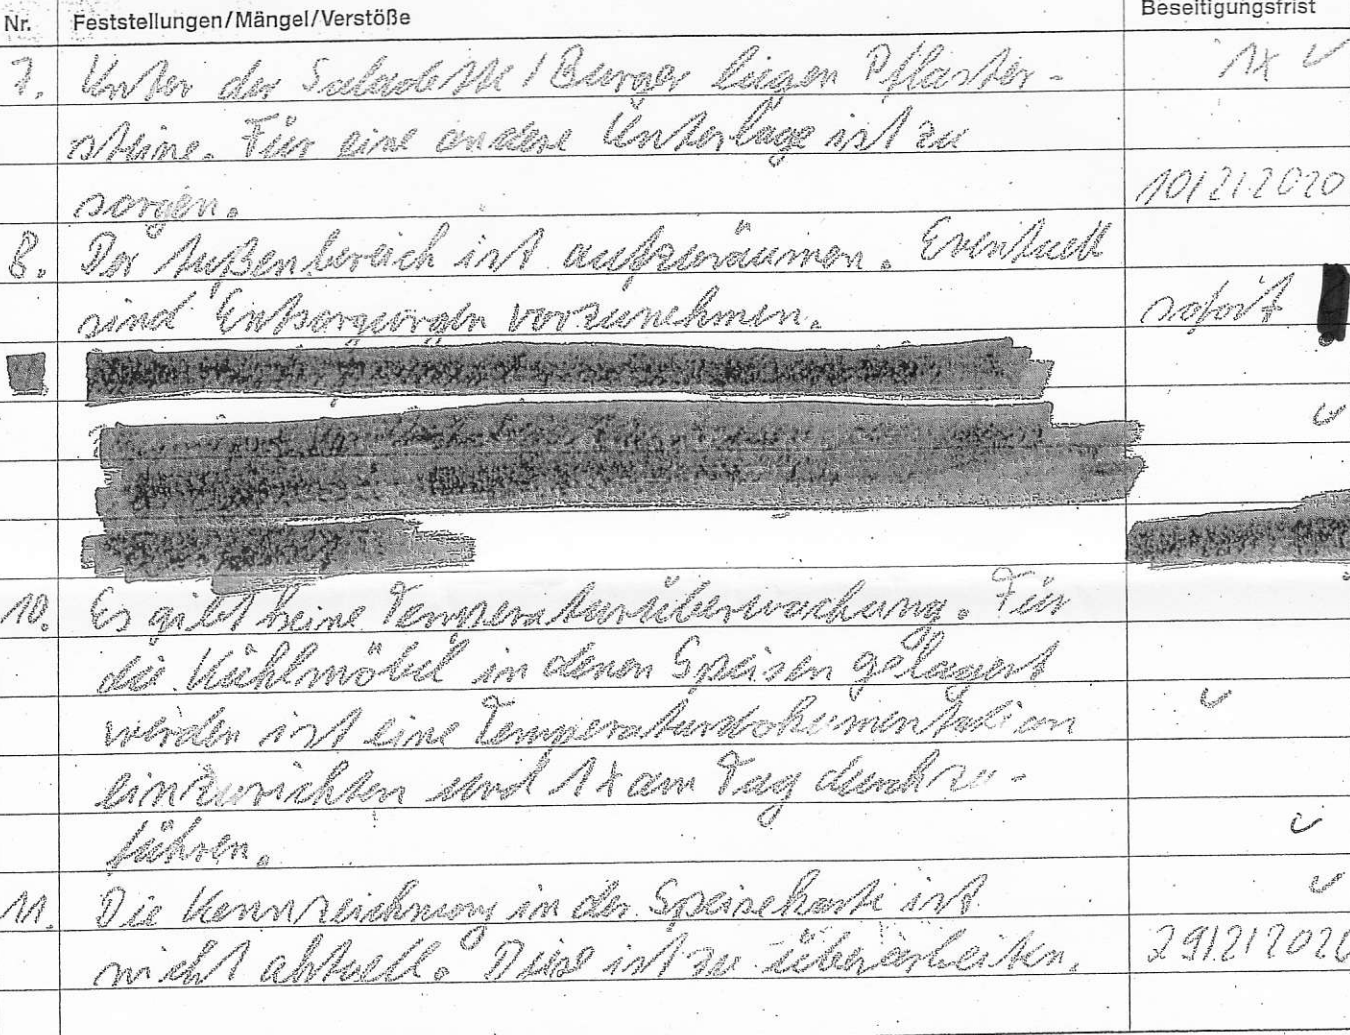 Nr. Feststellungen/Mängel/Verstöße Beseitigungsfrist
7. Unter der Saladette / Burger liegen Pflaster- 1x ✓
steine. Für eine andere Unterlage ist zu
sorgen. 10/2/2020
8. Der Außenbereich ist aufzuräumen. Eventuell
sind Entsorgungen vorzunehmen. sofort
✓
10. Es gibt keine Temperaturüberwachung. Für
die Kühlmöbel in denen Speisen gelagert
werden ist eine Temperaturdokumentation ✓
einzurichten und 1x am Tag durchzu-
führen. ✓
11. Die Kennzeichnung in der Speisekarte ist ✓
nicht aktuell. Diese ist zu überarbeiten. 29/2/2020